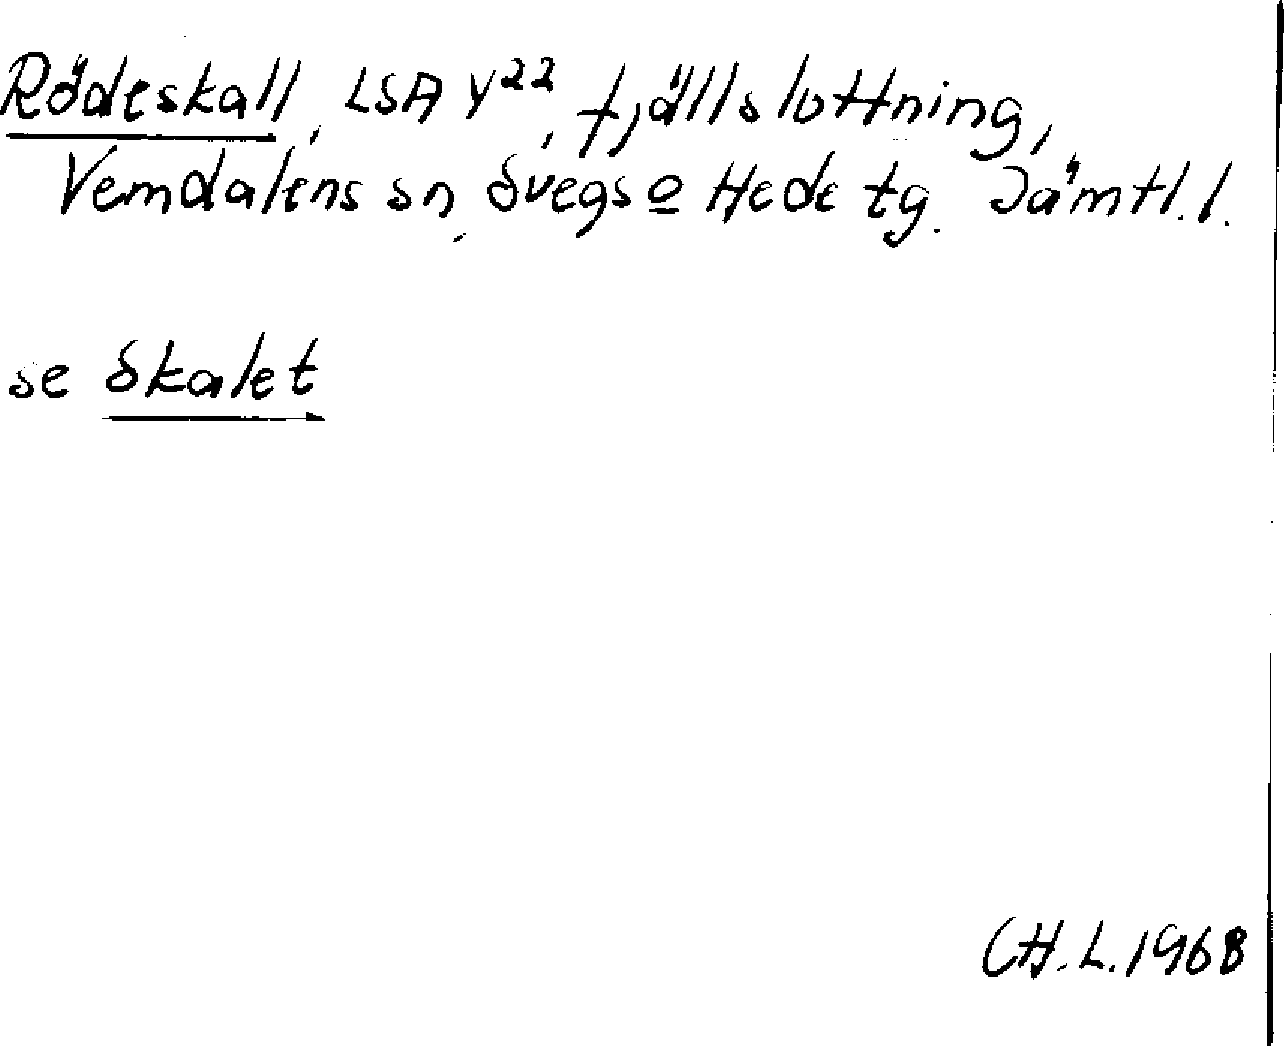 Rödeskall, LSA Y22, fjällsluttning,
Vemdalens sn, Svegs o Hede tg. Jämtl. l.
se Skalet
CH.L. 1968